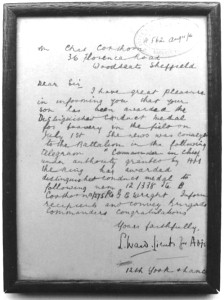 Mr Chas Conchom
36 Florence Road
Woodseats Sheffield
Dear Sir
I have great pleasure
in informing you that your
son has been awarded the
Distinguished Conduct medal
for bravery on the field on
July 1st. The news was
to the Battalion in the following
telegram Commander in Chief
under authority granted by HM
the King has awarded
distinguished conduct medal to
following men 12/338 Pte B
C Wright Inform
recipients and convey
Commanders Congratulations
Yours faithfully,
Lieut for Adjt
12th York & Lancs